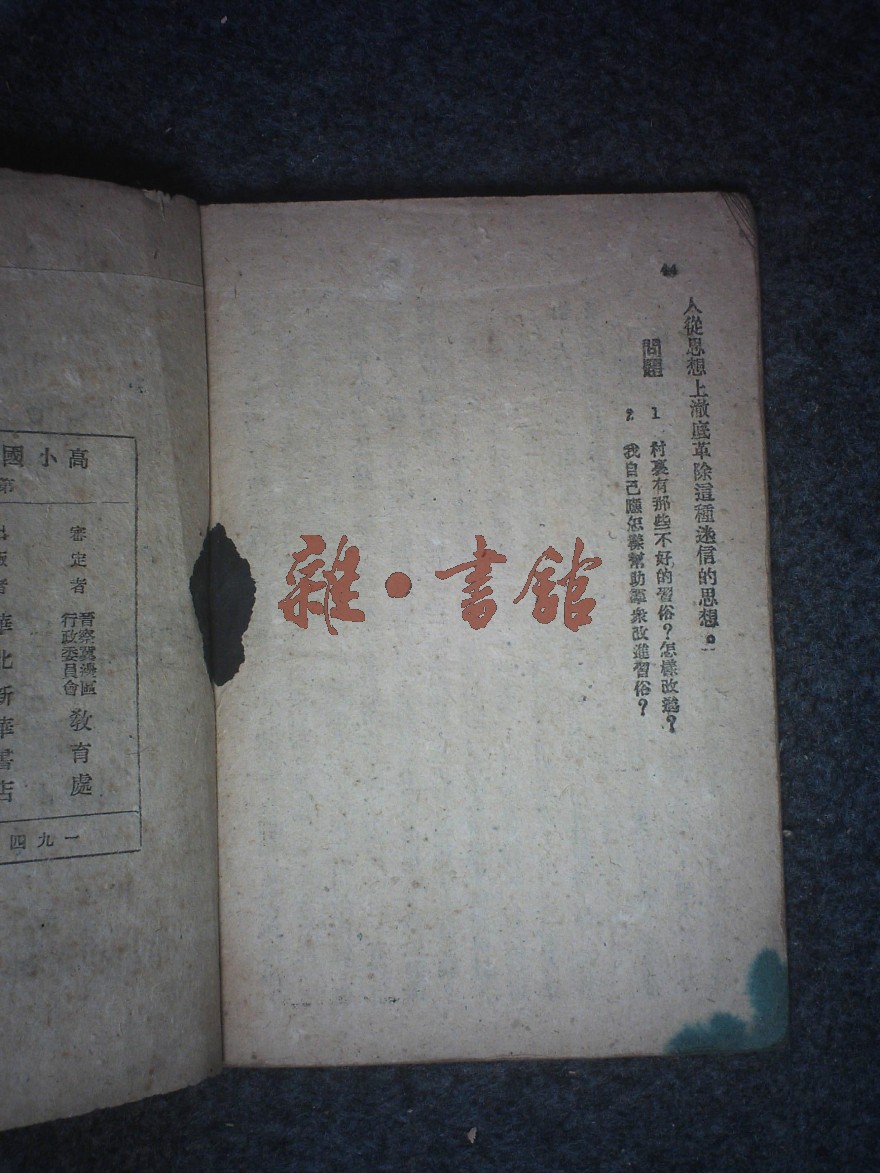 44
人從思想上澈底革除這種迷信的思想。」
問題
1 村裏有那些不好的習俗？怎樣改進？
2 我自己應怎樣幫助羣衆改進習俗？
雜·書館
高小國
第
審定者 晋察冀邊區行政委員會 教育處
出版者 華北新華書店
一九四